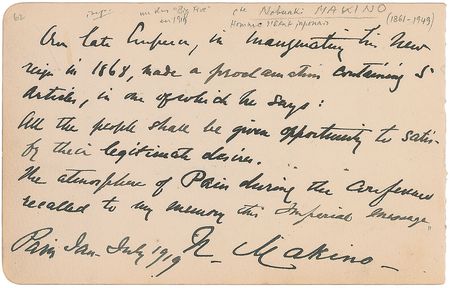 62 un des "Big Five" en 1919 Cte Nobuaki MAKINO
Homme d'État japonais (1861-1949)
Our late Emperor, in inaugurating his new
reign in 1868, made a proclamation containing 5
Articles, in one of which he says:
All the people shall be given opportunity to satis-
fy their legitimate desires.
The atmosphere of Paris during the Conference
recalled to my memory this Imperial message
Paris Jan-July 1919 N. Makino